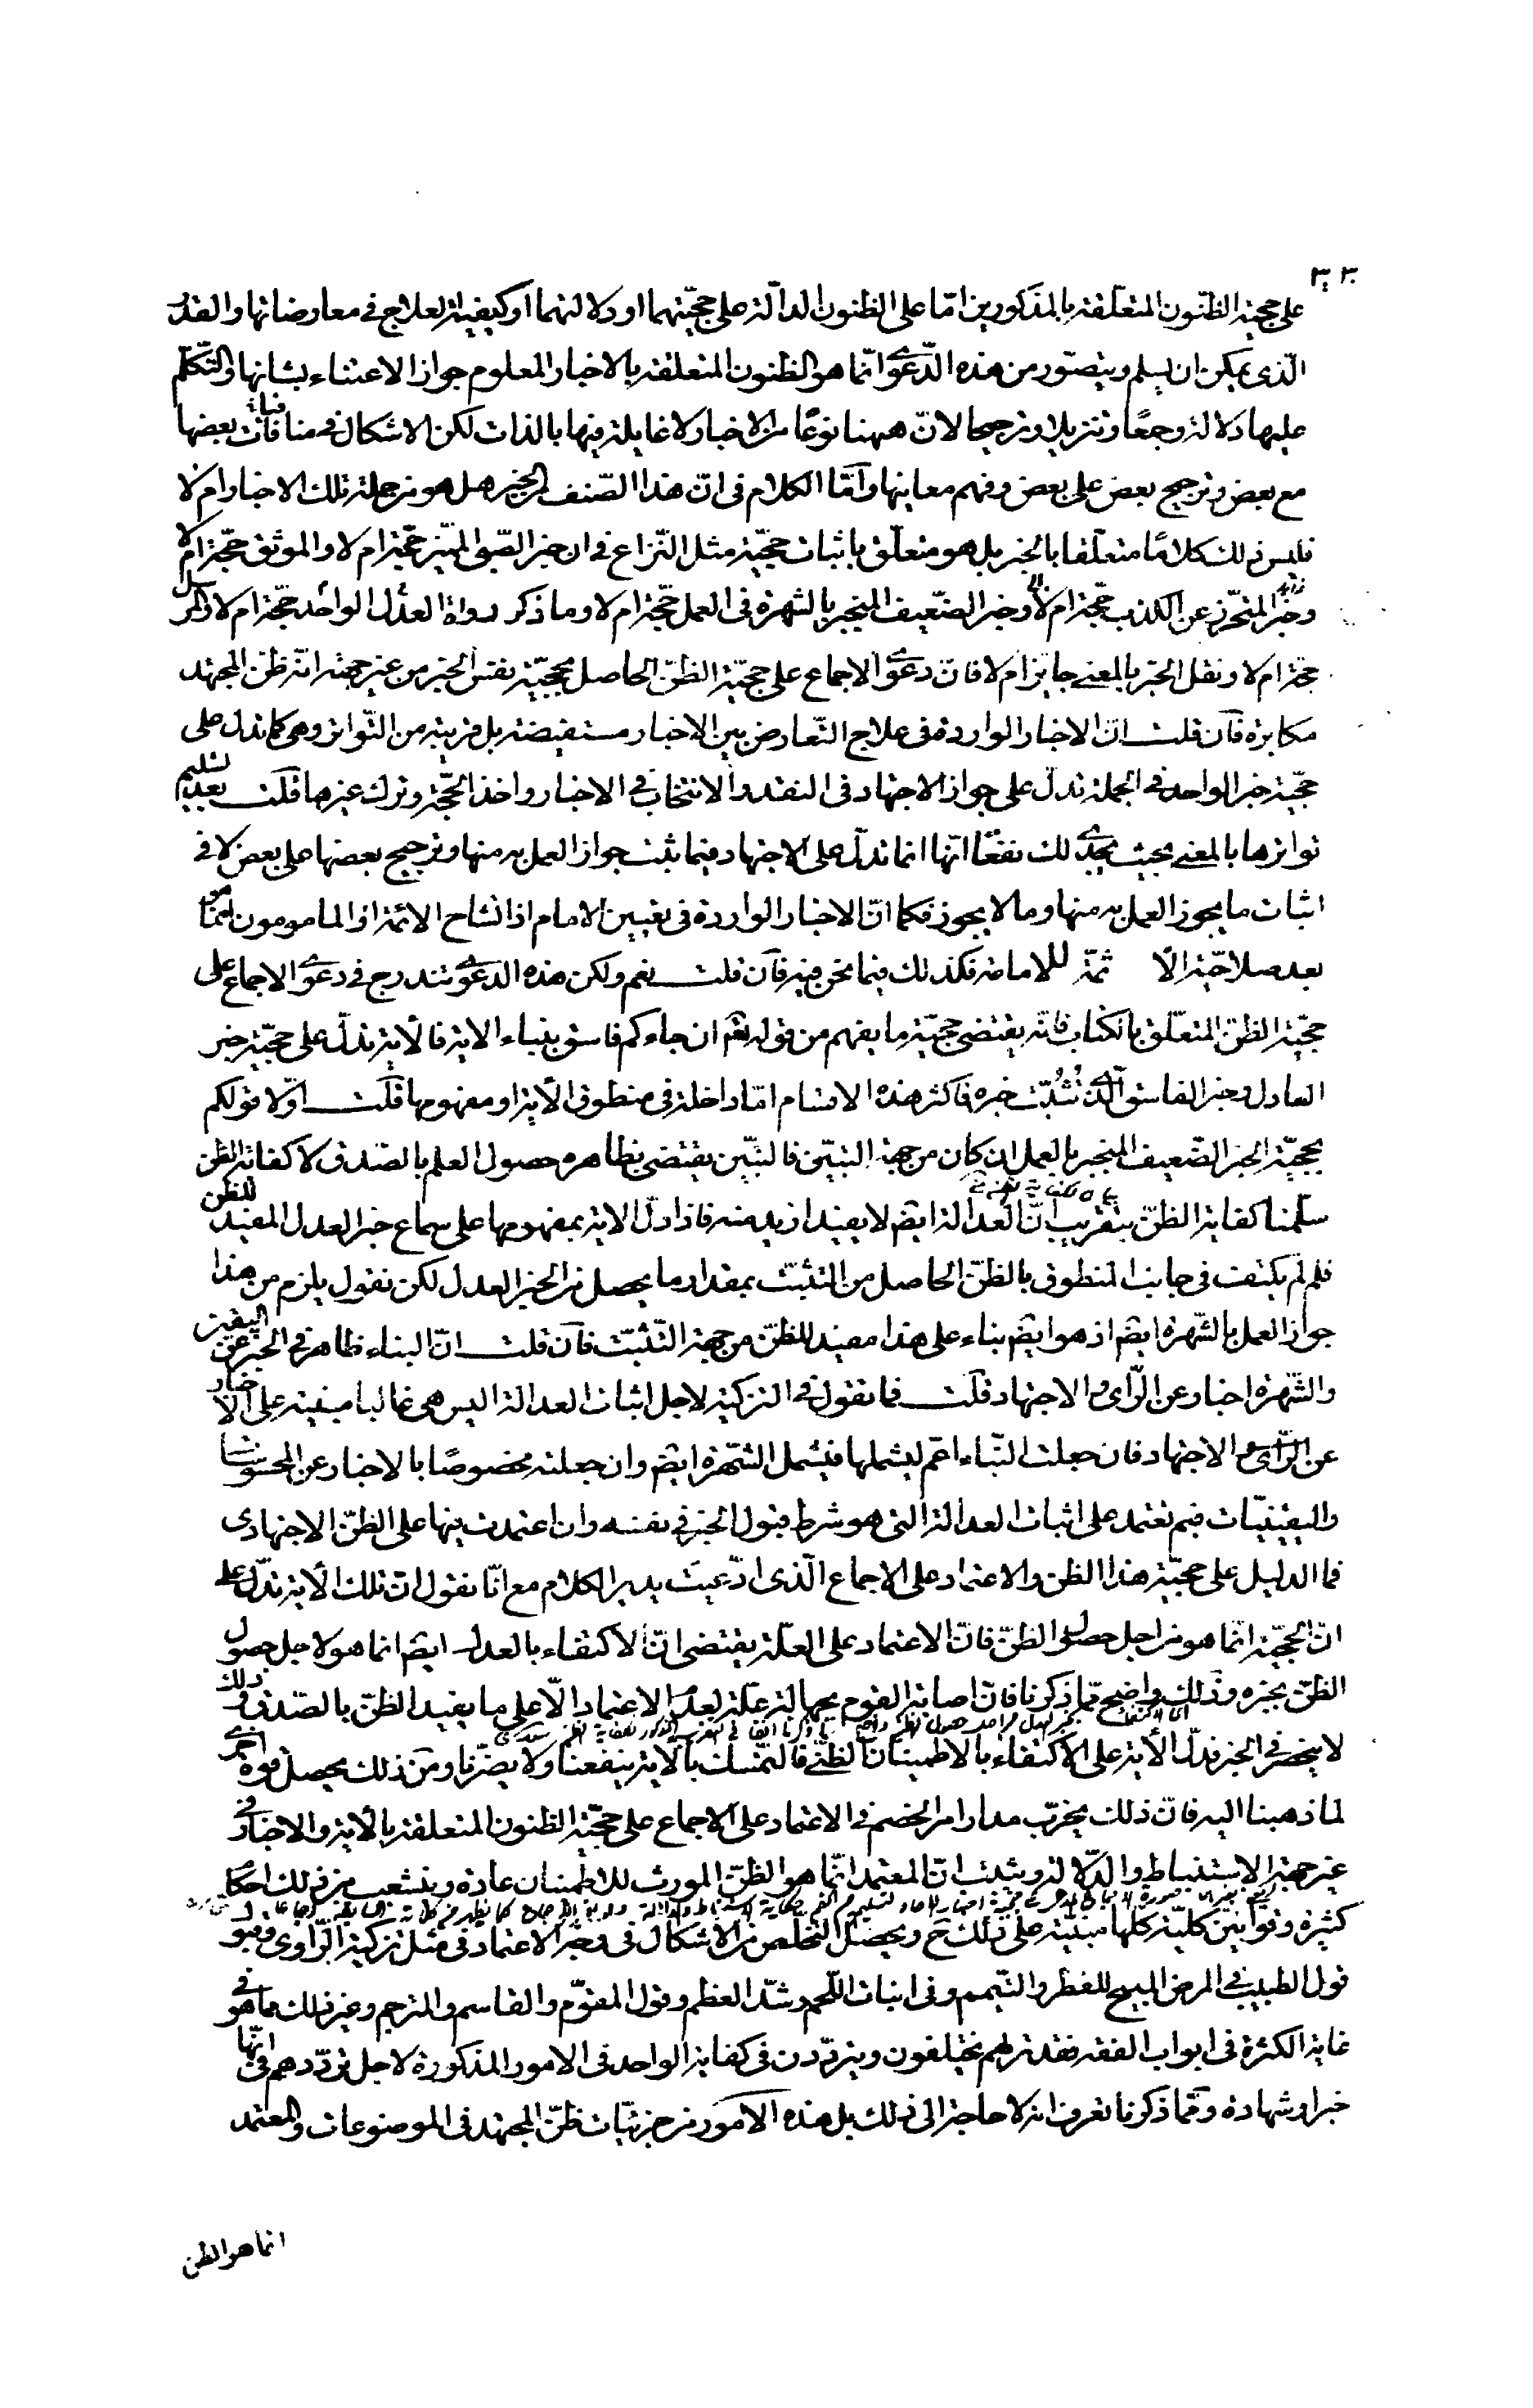 ٣٣٠
على حجية الظنون المتعلقة بالمذكورين امّا على الظنون الدالّة على حجّيتهما او دلالتهما او كيفية العلاج في معارضاتها والقدر
الّذي يمكن ان يسلم ويتصوّر من هذه الدّعوى انّما هو الظنون المتعلقة بالاخبار المعلوم جواز الاعتناء بشانها والتّكلّم
عليها دلالة وجمعًا وتنزيلا وترجيحا لانّ ههنا نوعًا من الاخبار لا غايلة فيها بالذات لكن الاشكال في منافات بعضها
مع بعض وترجيح بعض على بعض وفهم معاينها وامّا الكلام في انّ هذا الصّنف من الخبر هل هو من جملة تلك الاخبار ام لا
فليس ذلك كلامًا متعلّقا بالخبر بل هو متعلّق باثبات حجّية مثل النّزاع في ان خبر الصّبي المميّز حجّة ام لا والموثق حجّة ام لا
وخبر المتحرّز عن الكذب حجّة ام لا وخبر الضّعيف المنجبر بالشهرة في العمل حجّة ام لا وما ذكر رواة العدل الواحد حجّة ام لا والمرسل
حجّة ام لا ونقل الخبر بالمعنى جايز ام لا فانّ دعوى الاجماع على حجّية الظنّ الحاصل بحجّية نفس الخبر من غير جهة انّه ظنّ المجتهد
مكابرة فان قلت انّ الاخبار الواردة في علاج التّعارض بين الاخبار مستفيضة بل قريبة من التّواتر وهي كما تدل على
حجّية خبر الواحد في الجملة تدلّ على جواز الاجتهاد في النقد والانتخاب في الاخبار واخذ الحجّة وترك غيرها قلت بعد تسليم
تواترها بالمعنى بحيث يجدى لك نفعًا انّها انما تدلّ على الاجتهاد فيما ثبت جواز العمل به منها وترجيح بعضها على بعض لا في
اثبات ما يجوز العمل به منها وما لا يجوز فكما انّ الاخبار الواردة في تعيين الامام اذا تشاح الائمة او المامومون انما هو
بعد صلاحيّة الائمّة للامامة فكذلك فيما نحن فيه فان قلت نعم ولكن هذه الدعوى تندرج في دعوى الاجماع على
حجّية الظنّ المتعلّق بالكتاب فانّه يقتضى حجّية ما يفهم من قوله تعم ان جاءكم فاسق بنباء الاية فالاية تدلّ على حجّية خبر
العادل وخبر الفاسق الّذي تثبّت خبره فاكثر هذه الاقسام امّا داخلة في منطوق الآية او مفهومها قلت اوّلا قولكم
بحجّية الخبر الضّعيف المنجبر بالعمل ان كان من جهة التبيّن فالتبيّن يقتضى بظاهره حصول العلم بالصّدق لا كفاية الظن
سلّمنا كفاية الظنّ بتقريب انّ العدالة ايضم لا يفيد ازيد منه فاذا دلّ الاية بمفهومها على سماع خبر العدل المفيد للظن
فلم لم يكتف في جانب المنطوق بالظنّ الحاصل من التثبّت بمقدار ما يحصل من الخبر العدل لكن نقول يلزم من هذا
جواز العمل بالشّهرة ايضم اذ هو ايضم بناء على هذا مفيد للظنّ من جهة التّثبّت فان قلت انّ النباء ظاهر في الخبر عن اليقين
والشّهرة اخبار عن الرّأى والاجتهاد قلت فما تقول في التزكية لاجل اثبات العدالة اليس هي غالبا مبنية على الاخبار
عن الرّأى والاجتهاد فان جعلت النّباء اعم ليشملها فيشمل الشّهرة ايضم وان جعلته مخصوصًا بالاخبار عن المحسوسات
واليقينيّات فبم تعتمد على اثبات العدالة التي هو شرط قبول الخبر في نفسه وان اعتمدت فيها على الظنّ الاجتهادى
فما الدليل على حجيّة هذا الظن والاعتماد على الاجماع الّذي ادّعيت يدير الكلام مع انّا نقول انّ تلك الآية تدلّ على
انّ الحجّية انّما هو من اجل حصول الظنّ فانّ الاعتماد على العلّة يقتضى انّ الاكتفاء بالعدل ايضم انما هو لاجل حصول
الظنّ بخبره وذلك واضح ممّا ذكرنا فانّ اصابة القوم بجهالة علّة لعدم الاعتماد الّا على ما يفيد الظنّ بالصّدق وذلك
لا ينحصر في الخبر فدلّ الآية على الاكتفاء بالاطمينان الظنّي فالتمسّك بالآية ينفعنا ولا يضرّنا ومن ذلك يحصل قوة اخرى
لما ذهبنا اليه فانّ ذلك يخرّب مدار امر الخصم في الاعتماد على الاجماع على حجّية الظنون المتعلقة بالآية والاخبار في
غير جهة الاستنباط والدّلالة ويثبت انّ المعتمد انّما هو الظنّ المورث للاطمئنان عادة وينشعب من ذلك احكام
كثيرة وقوانين كليّة كلها مبنيّة على ذلك ح ويحصل التخلّص من الاشكال في وجه الاعتماد في مثل تزكية الرّاوى وقبول
قول الطبيب في المرض المبيح للفطر والتيمم وفي انبات اللّحم وشدّ العظم وقول المقوّم والقاسم والمترجم وغير ذلك مما هو في
غاية الكثرة في ابواب الفقه فقد تريهم يختلفون ويتردّدون في كفاية الواحد في الامور المذكورة لاجل تردّدهم في انّها
خبر او شهادة وممّا ذكرنا تعرف انه لا حاجة الى ذلك بل هذه الامور من جزئيّات ظنّ المجتهد في الموضوعات والمعتمد
انما هو الظن